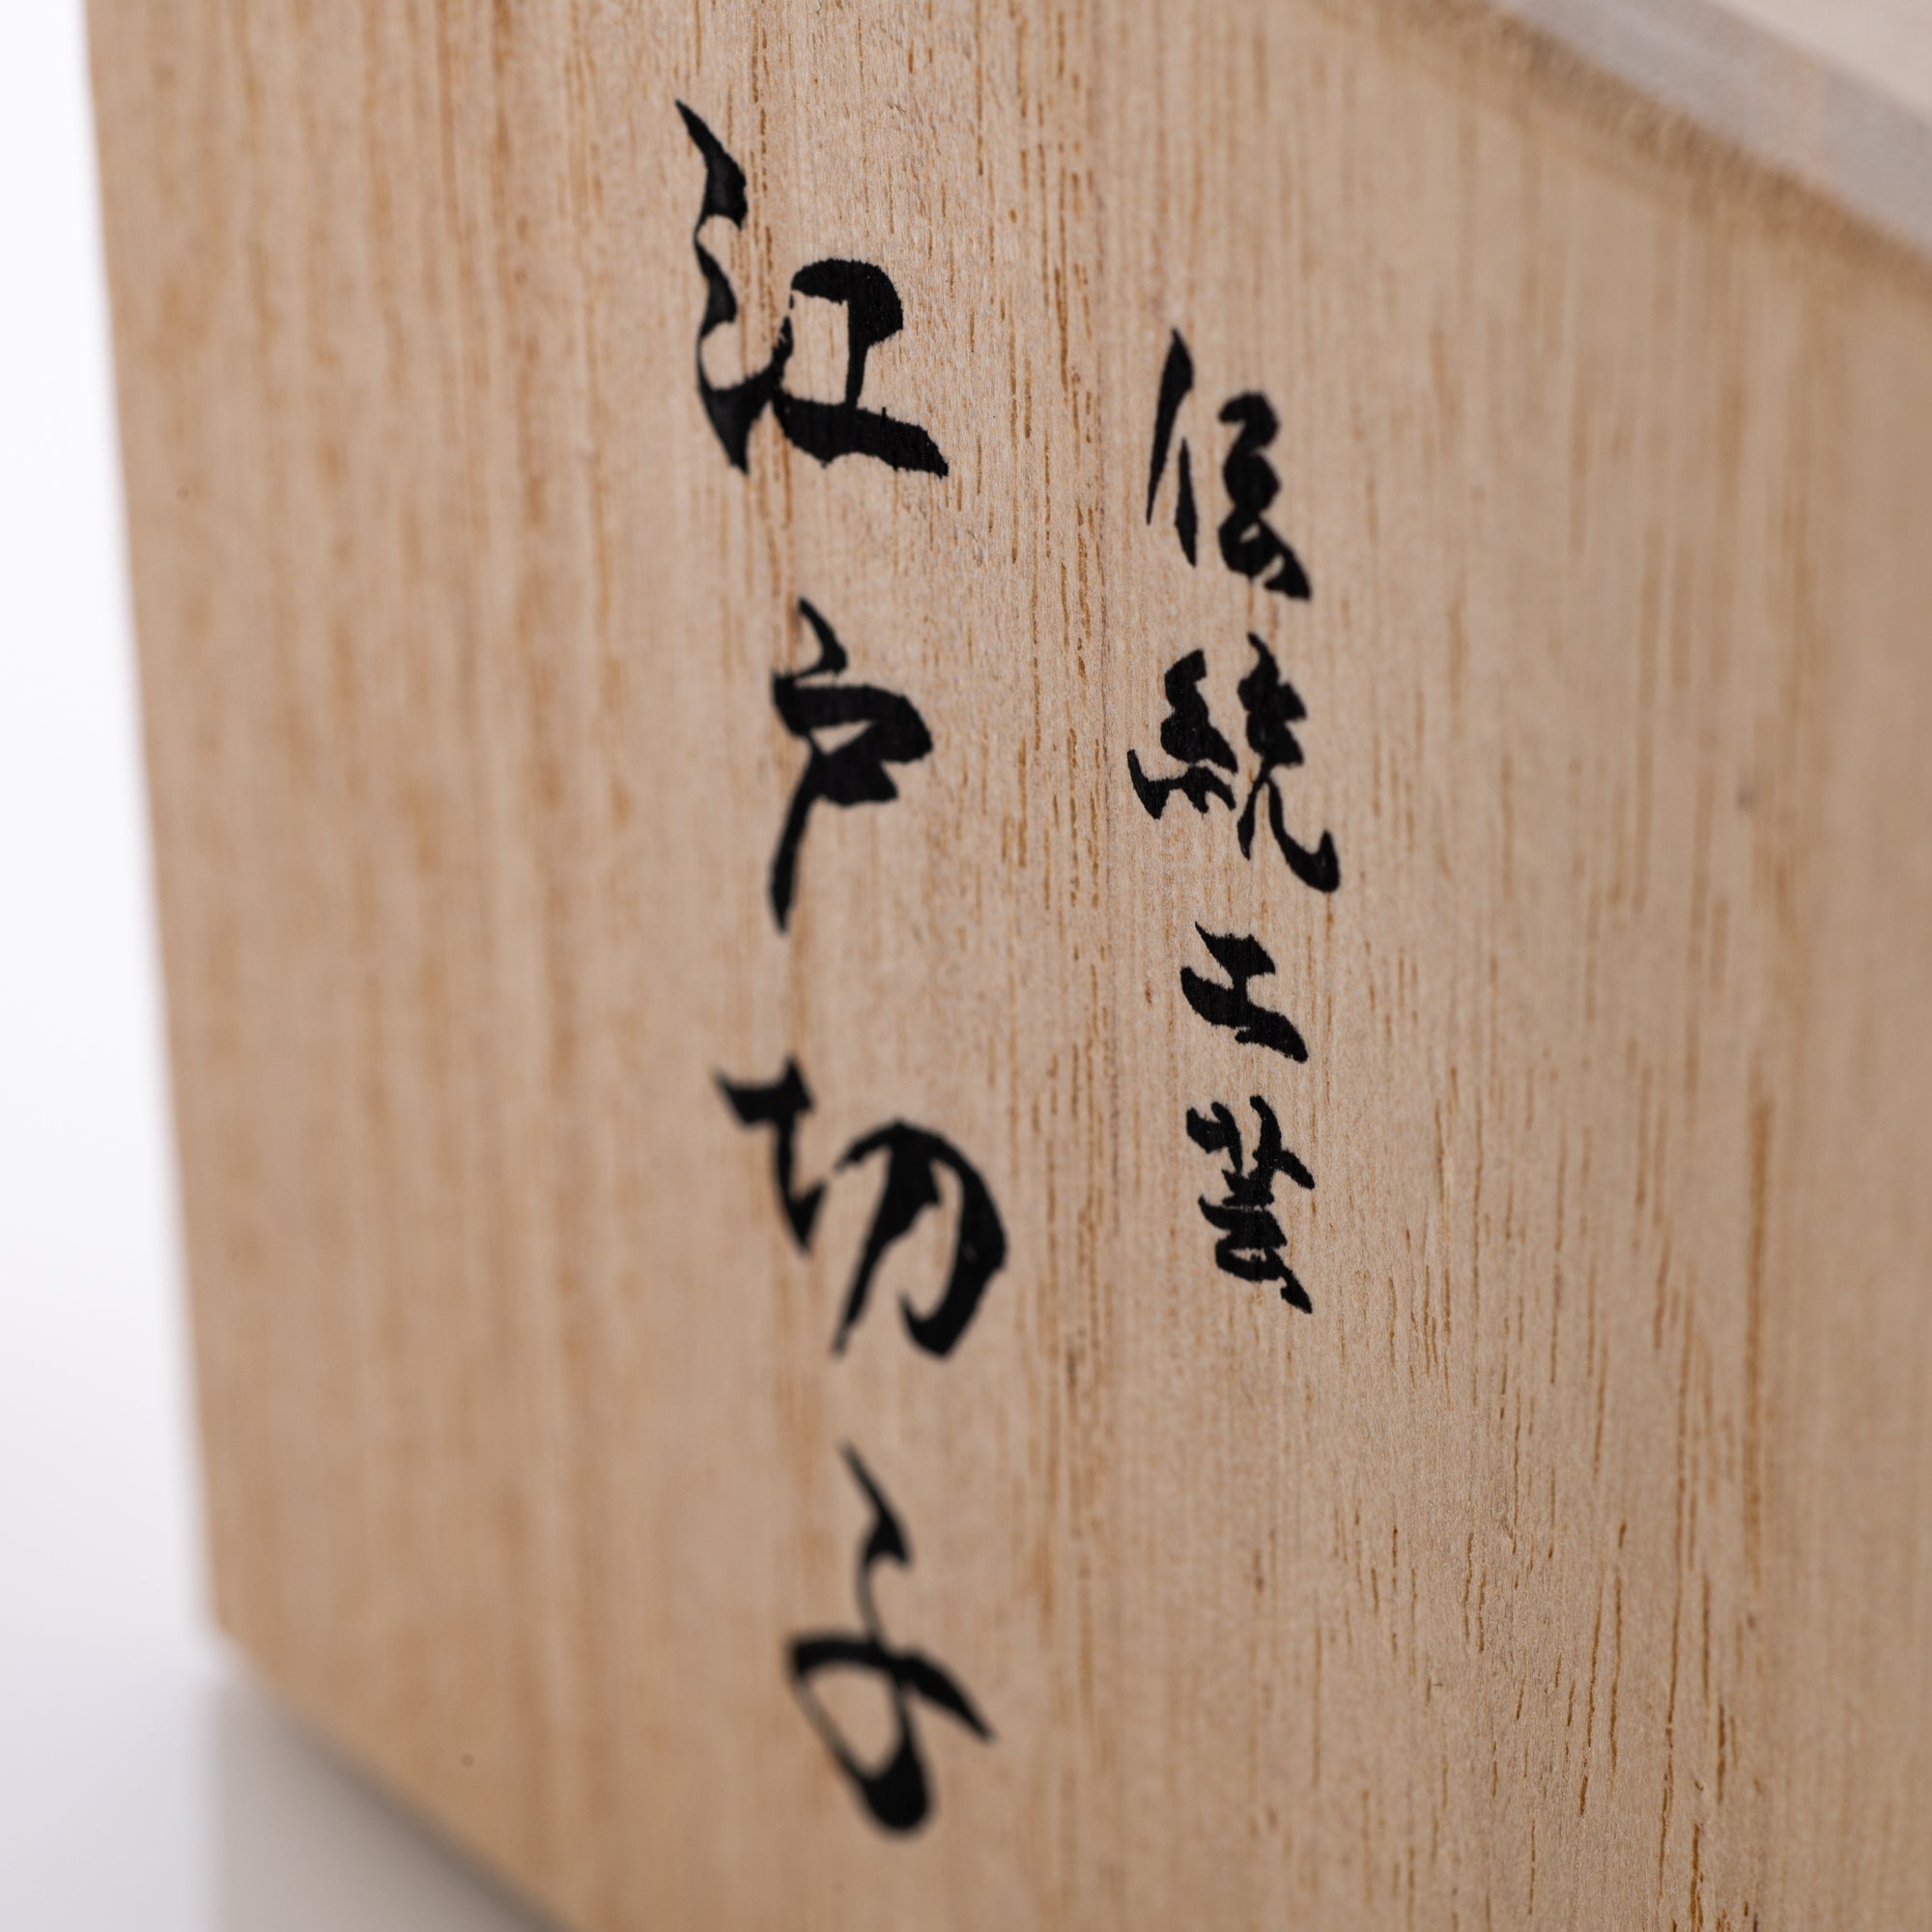 伝統工芸
江戸切子